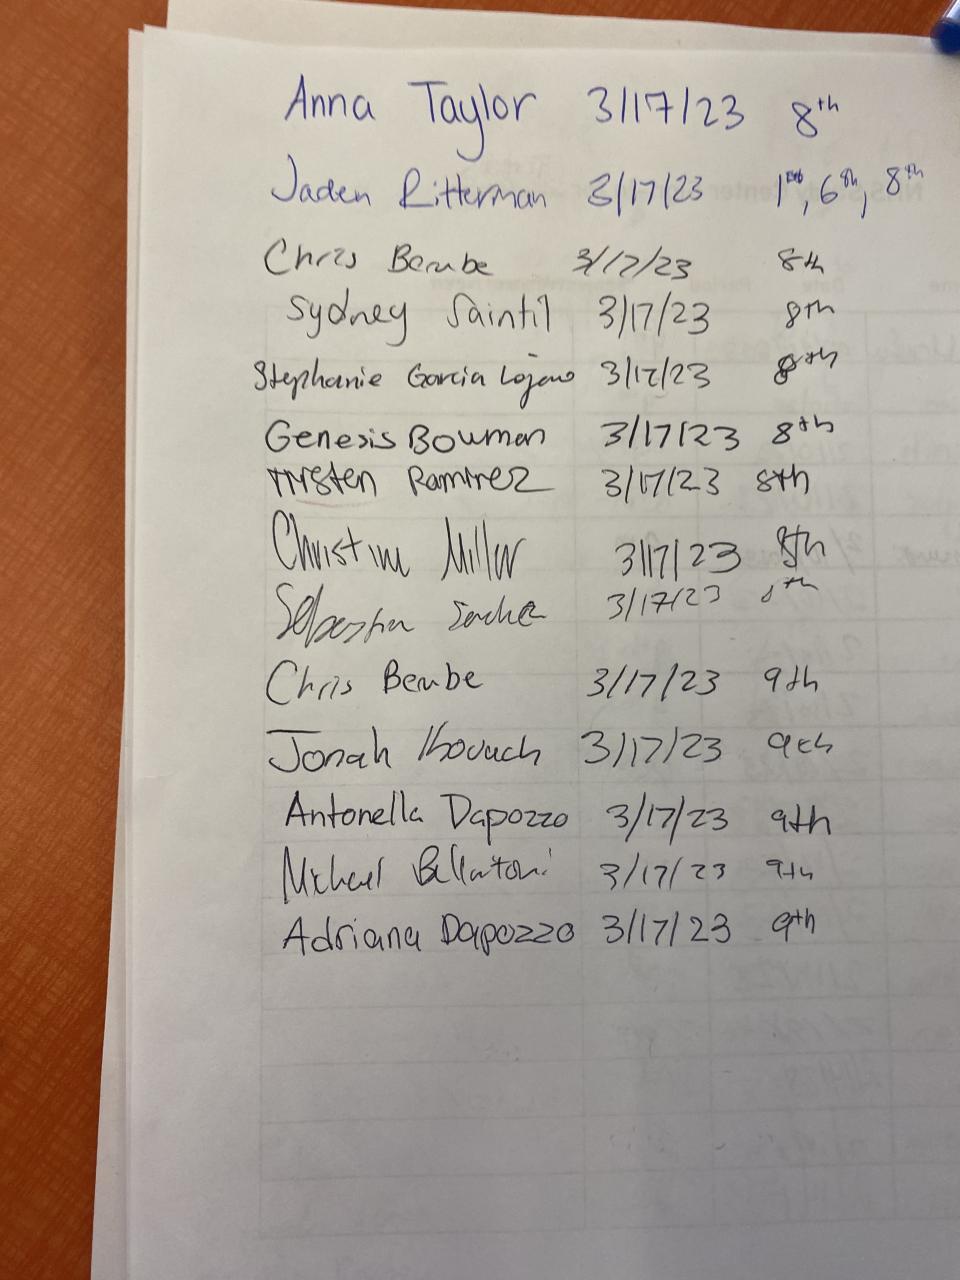 Anna Taylor 3/17/23 8th
Jaden Ritterman 3/17/23 1st, 6th, 8th
Chris Berube 3/17/23 8th
Sydney Saintil 3/17/23 8th
Stephanie Garcia Lojano 3/17/23 8th
Genesis Bowman 3/17/23 8th
Ramirez 3/17/23 8th
Christine Miller 3/17/23 8th
Sebastian 3/17/23
Chris Berube 3/17/23 9th
Jonah 3/17/23 9th
Antonella Dapozzo 3/17/23 9th
Michael 3/17/23 9th
Adriana Dapozzo 3/17/23 9th